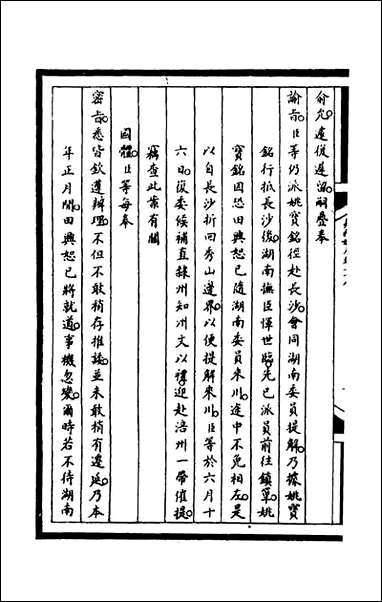 俞允遵復遵照嗣疊奉
諭旨臣等仍派姚寶銘徑赴長沙會同湖南委員提解乃據姚寶
銘行抵長沙後湖南撫臣惲世臨先已派員前往鎮草姚
寶銘因恐田興恕已隨湖南委員來川途中不免相左是
以自長沙折回秀山邊界以便提解來川臣等於六月十
六日復委候補直隸州知州文以禮迎赴涪州一帶催提
竊查此案有關
國體臣等每奉
密旨悉皆欽遵辦理不但不敢稍存推諉並未敢稍有遲延乃本
年正月間田興恕已將就道事機忽變爾時若不待湖南